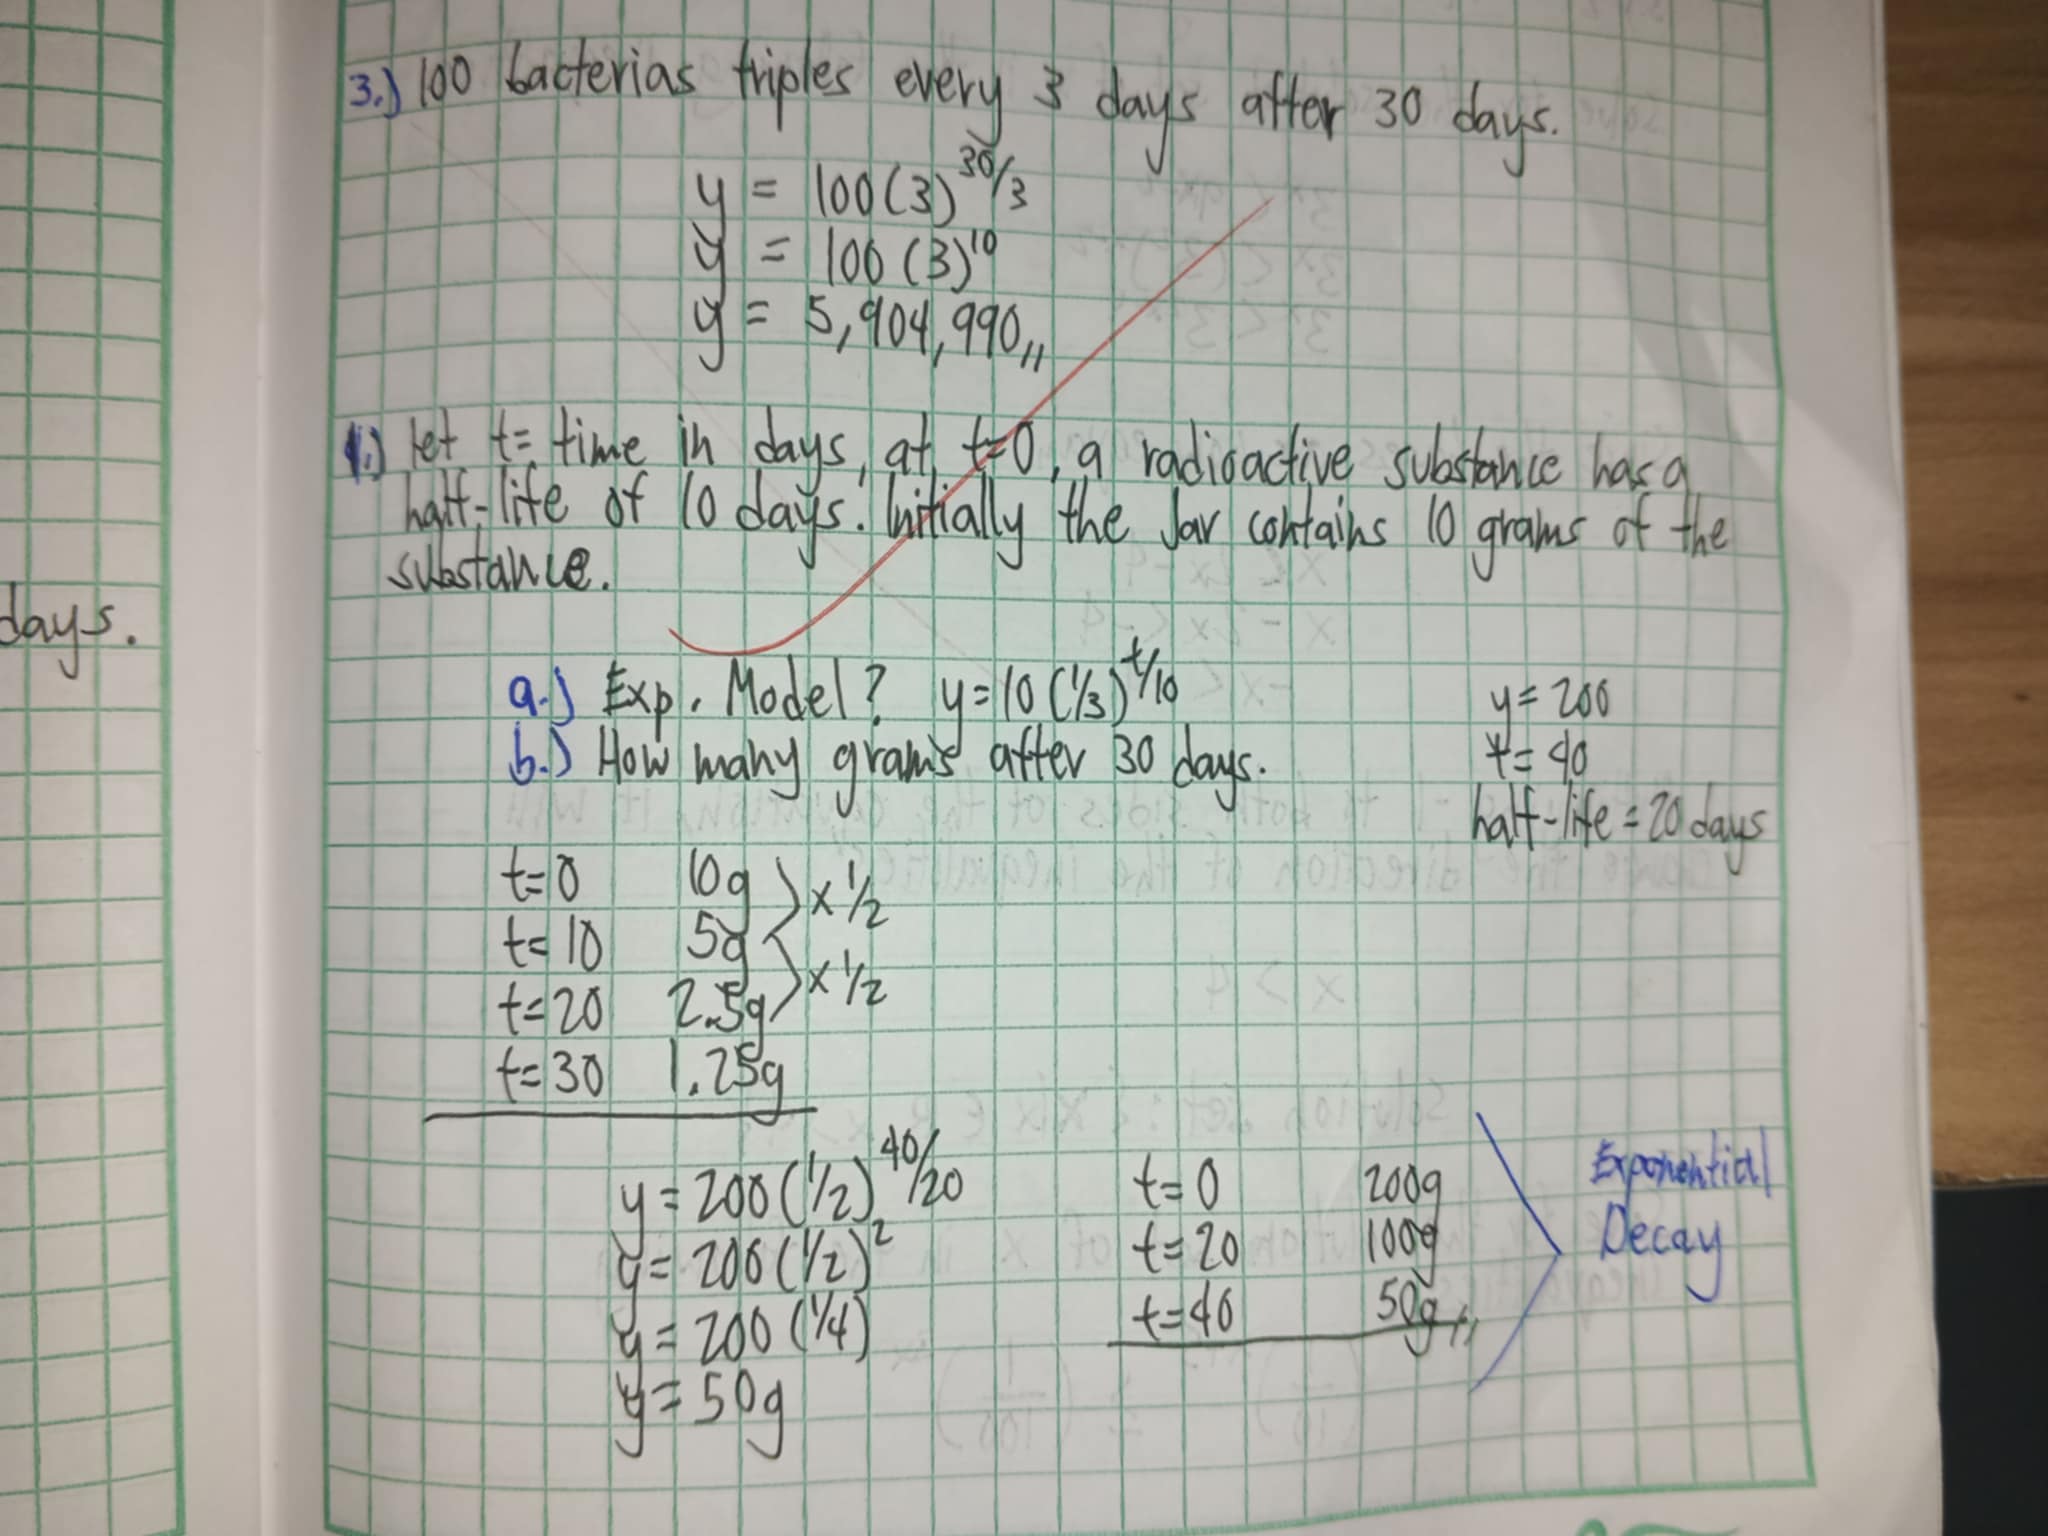 3.) 100 bacterias triples every 3 days after 30 days.
y = 100(3)^30/3
y = 100(3)^10
y = 5,904,990,,
1.) let t= time in days, at t=0, a radioactive substance has a
half-life of 10 days. Initially the Jar contains 10 grams of the
substance.
days.
a.) Exp. Model? y=10(1/3)^t/10
b.) How many grams after 30 days.
y= 200
t= 40
half-life = 20 days
t=0 10g
x 1/2
t= 10 5g
x 1/2
t= 20 2.5g
t= 30 1.25g
y = 200(1/2)^40/20
y= 200(1/2)^2
y= 200(1/4)
y= 50g
t= 0 200g
t= 20 100g
t= 40 50g,,
Exponential
Decay